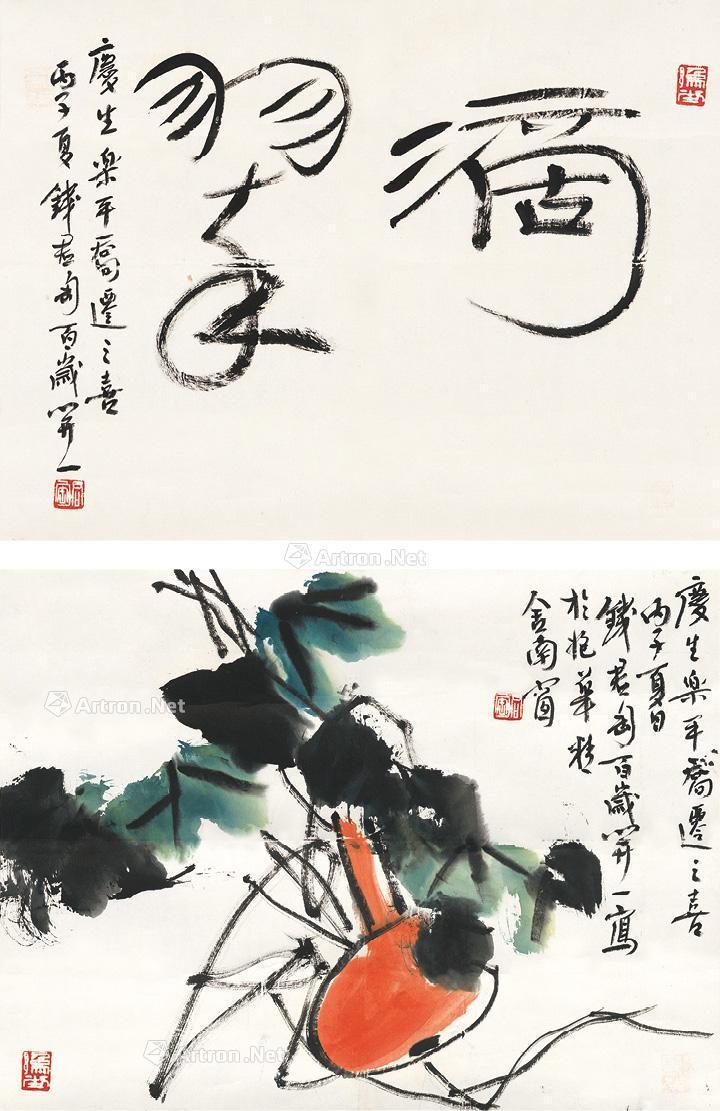 滴翠
慶生樂平喬遷之喜
丙子夏錢君匋百歲開一
Artron.Net
慶生樂平喬遷之喜
丙子夏日
錢君匋百歲開一寫
於抱華精
舍南窗
Artron.Net
Artron.Net
Artron.Net